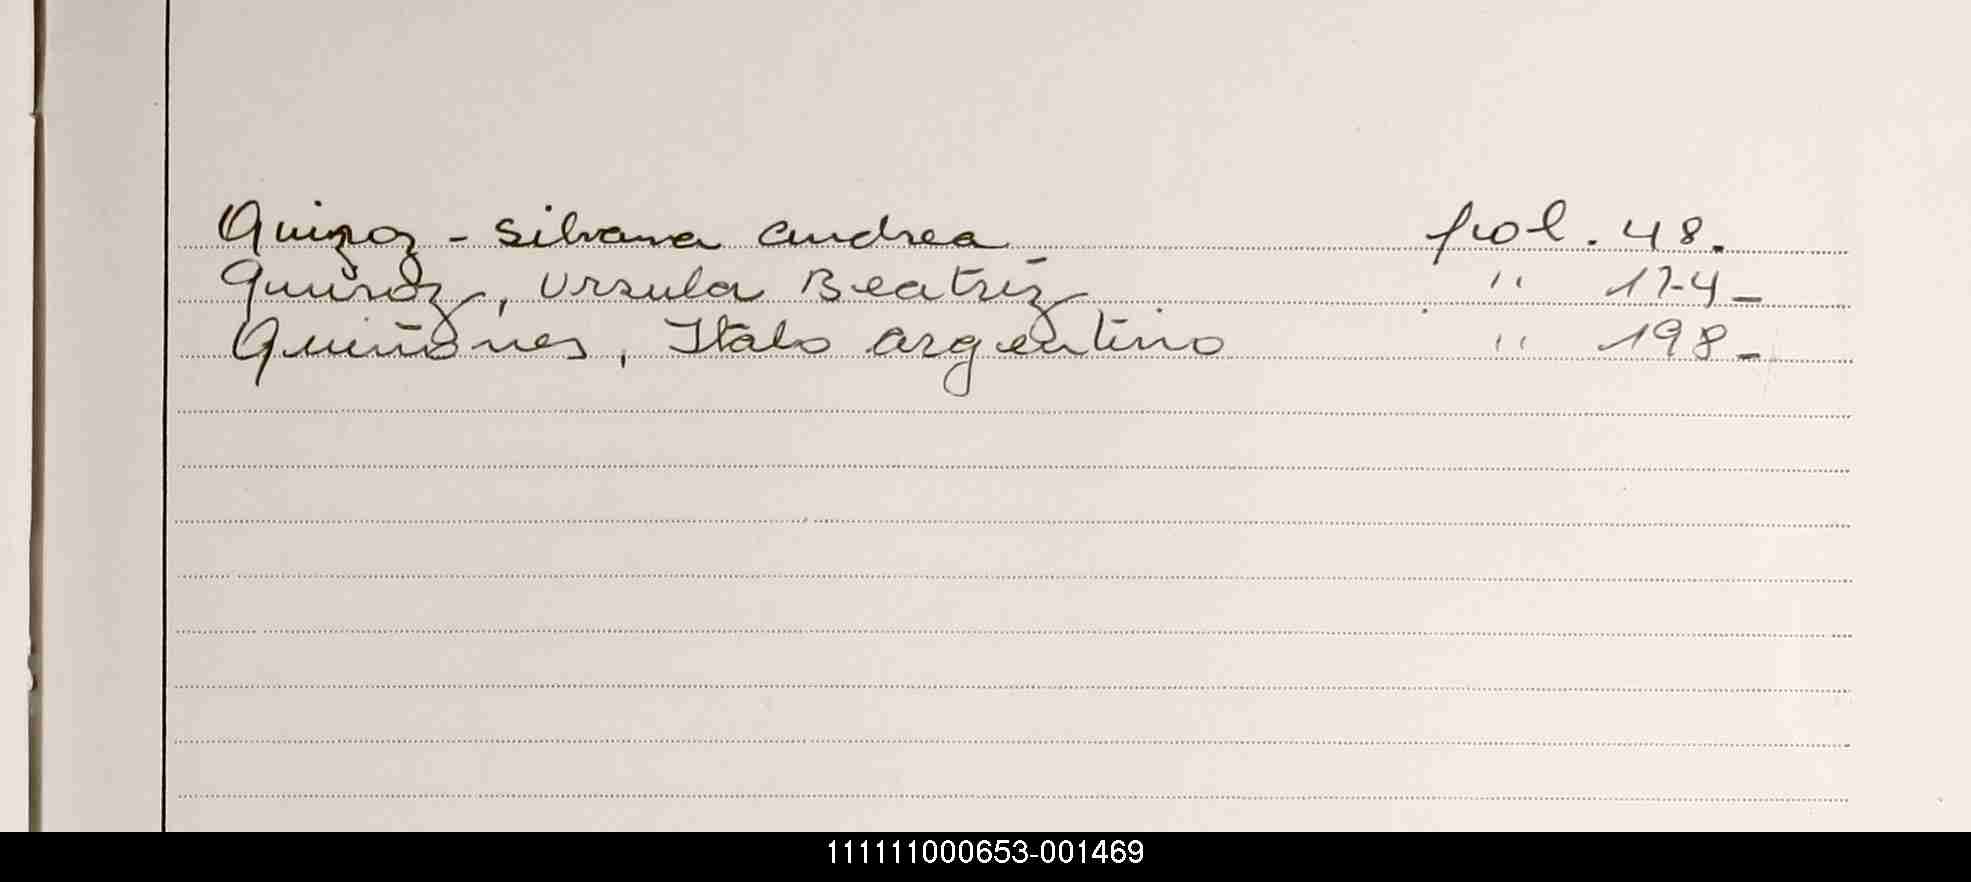 Quiroz - Silvana Andrea fol. 48.
Quiroz, Ursula Beatriz " 174 -
Quiñones, Italo Argentino " 198 -
111111000653-001469